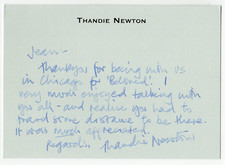 THANDIE NEWTON
Jean -
Thankyou for being with us
in Chicago for 'Beloved'! I
very much enjoyed talking with
you all - and realise you had to
travel some distance to be there.
It was much appreciated.
Regards, Thandie Newton